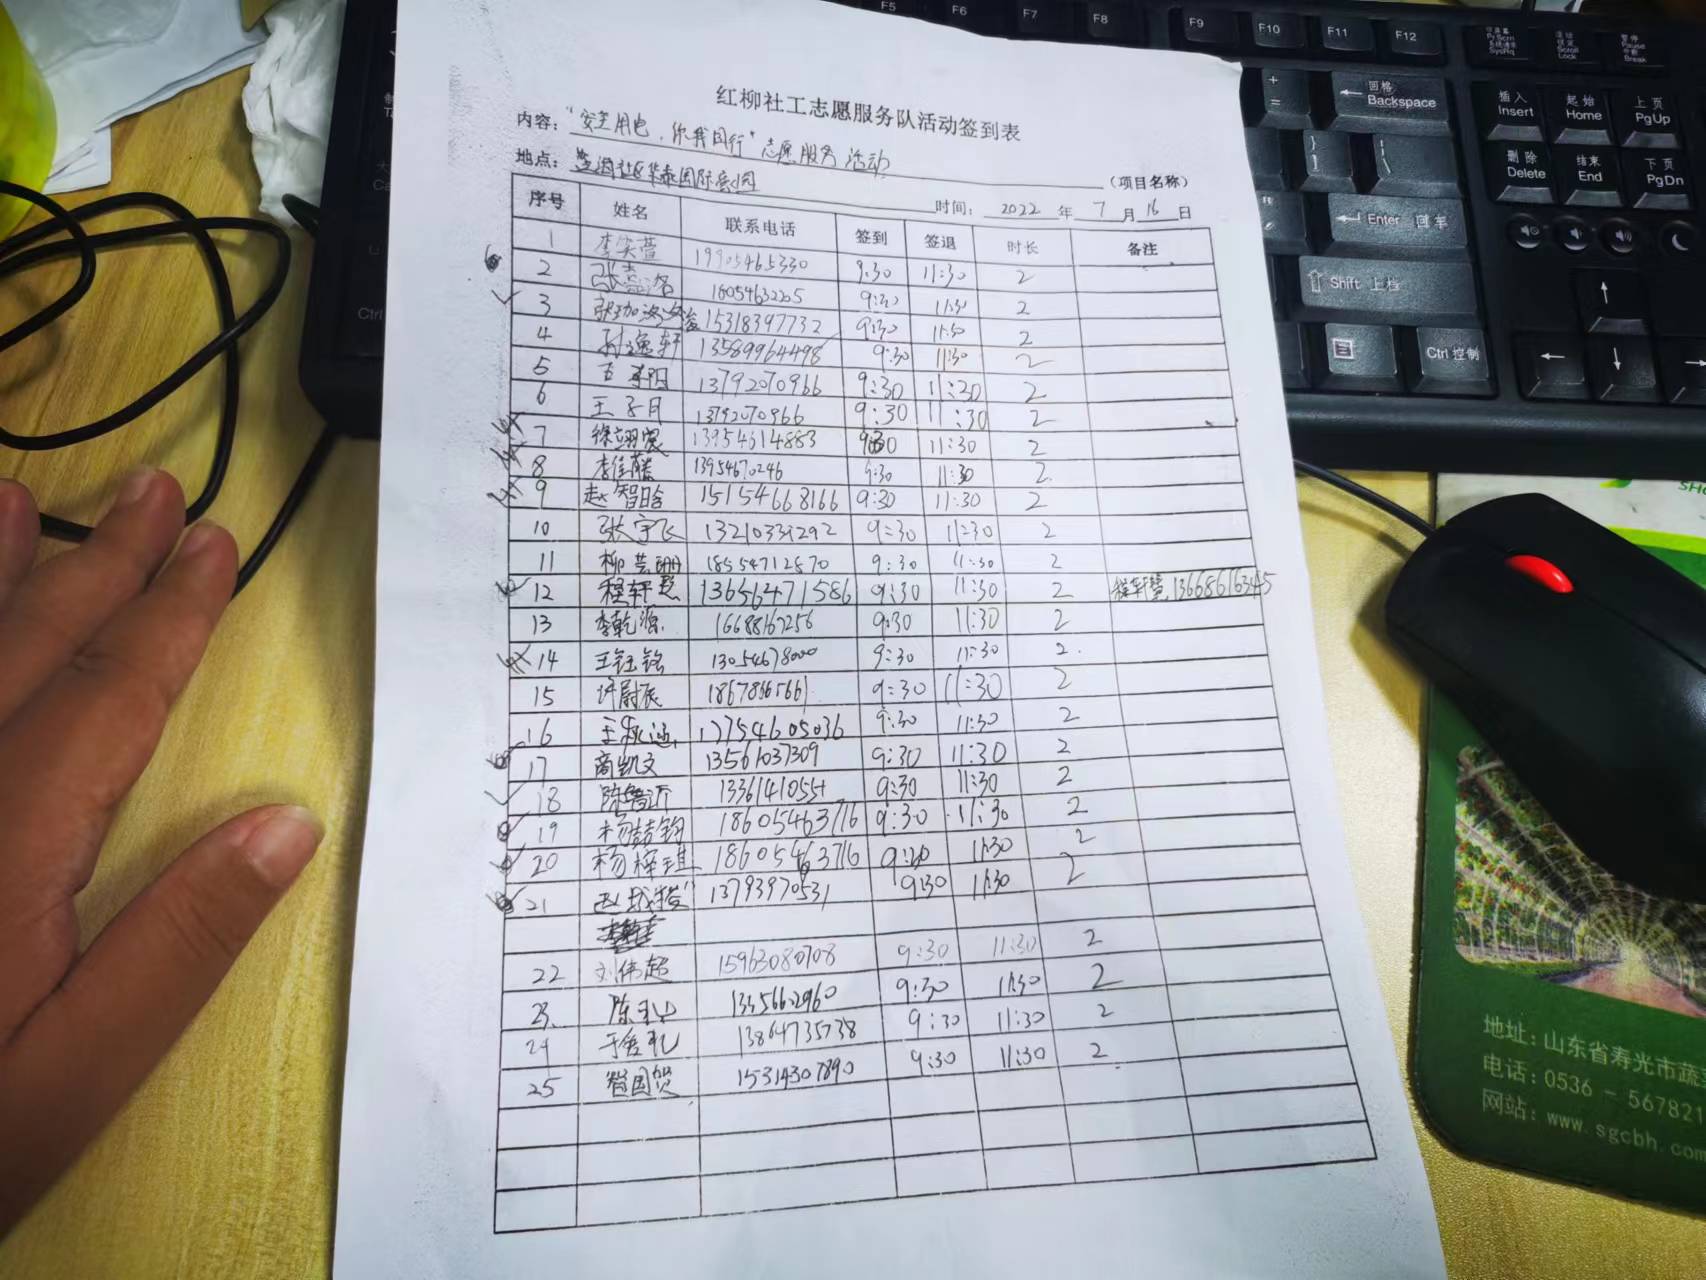 红柳社工志愿服务队活动签到表
内容："安全用电，你我同行"志愿服务活动（项目名称）
地点：社区华泰国际家园 时间：2022年7月16日
序号 姓名 联系电话 签到 签退 时长 备注
1 李奕萱 19905465330 9:30 11:30 2
2 16054632265 9:30 11:30 2
3 15318397732 9:30 11:30 2
4 孙逸轩 13589964498 9:30 11:30 2
5 13792070966 9:30 11:30 2
6 王子月 13792070966 9:30 11:30 2
7 徐翊宸 13954614883 9:30 11:30 2
8 李佳藤 13954670246 9:30 11:30 2
9 赵智晗 15154668166 9:30 11:30 2
10 张宇飞 13210331292 9:30 11:30 2
11 柳芸珊 18554712870 9:30 11:30 2
12 程轩慧 13656471586 9:30 11:30 2 程轩慧 13668616345
13 李乾源 16688167256 9:30 11:30 2
14 王钰铭 13054678000 9:30 11:30 2
15 许尉辰 18678365661 9:30 11:30 2
16 17754605036 9:30 11:30 2
17 商凯文 13561037309 9:30 11:30 2
18 13361410551 9:30 11:30 2
19 杨喆钧 18605463716 9:30 11:30 2
20 杨梓琪 18605463716 9:30 11:30 2
21 13793970531 9:30 11:30 2
22 刘伟超 15963080708 9:30 11:30 2
23 13356602960 9:30 11:30 2
24 13864735738 9:30 11:30 2
25 15314307890 9:30 11:30 2
F5 F6 F7 F8 F9 F10 F11 F12
回格
Backspace
插入 Insert
起始 Home
上页 PgUp
删除 Delete
结束 End
下页 PgDn
Enter 回车
Shift 上档
Ctrl 控制
地址：山东省寿光市蔬
电话：0536 - 567821
网站：www.sgcbh.com